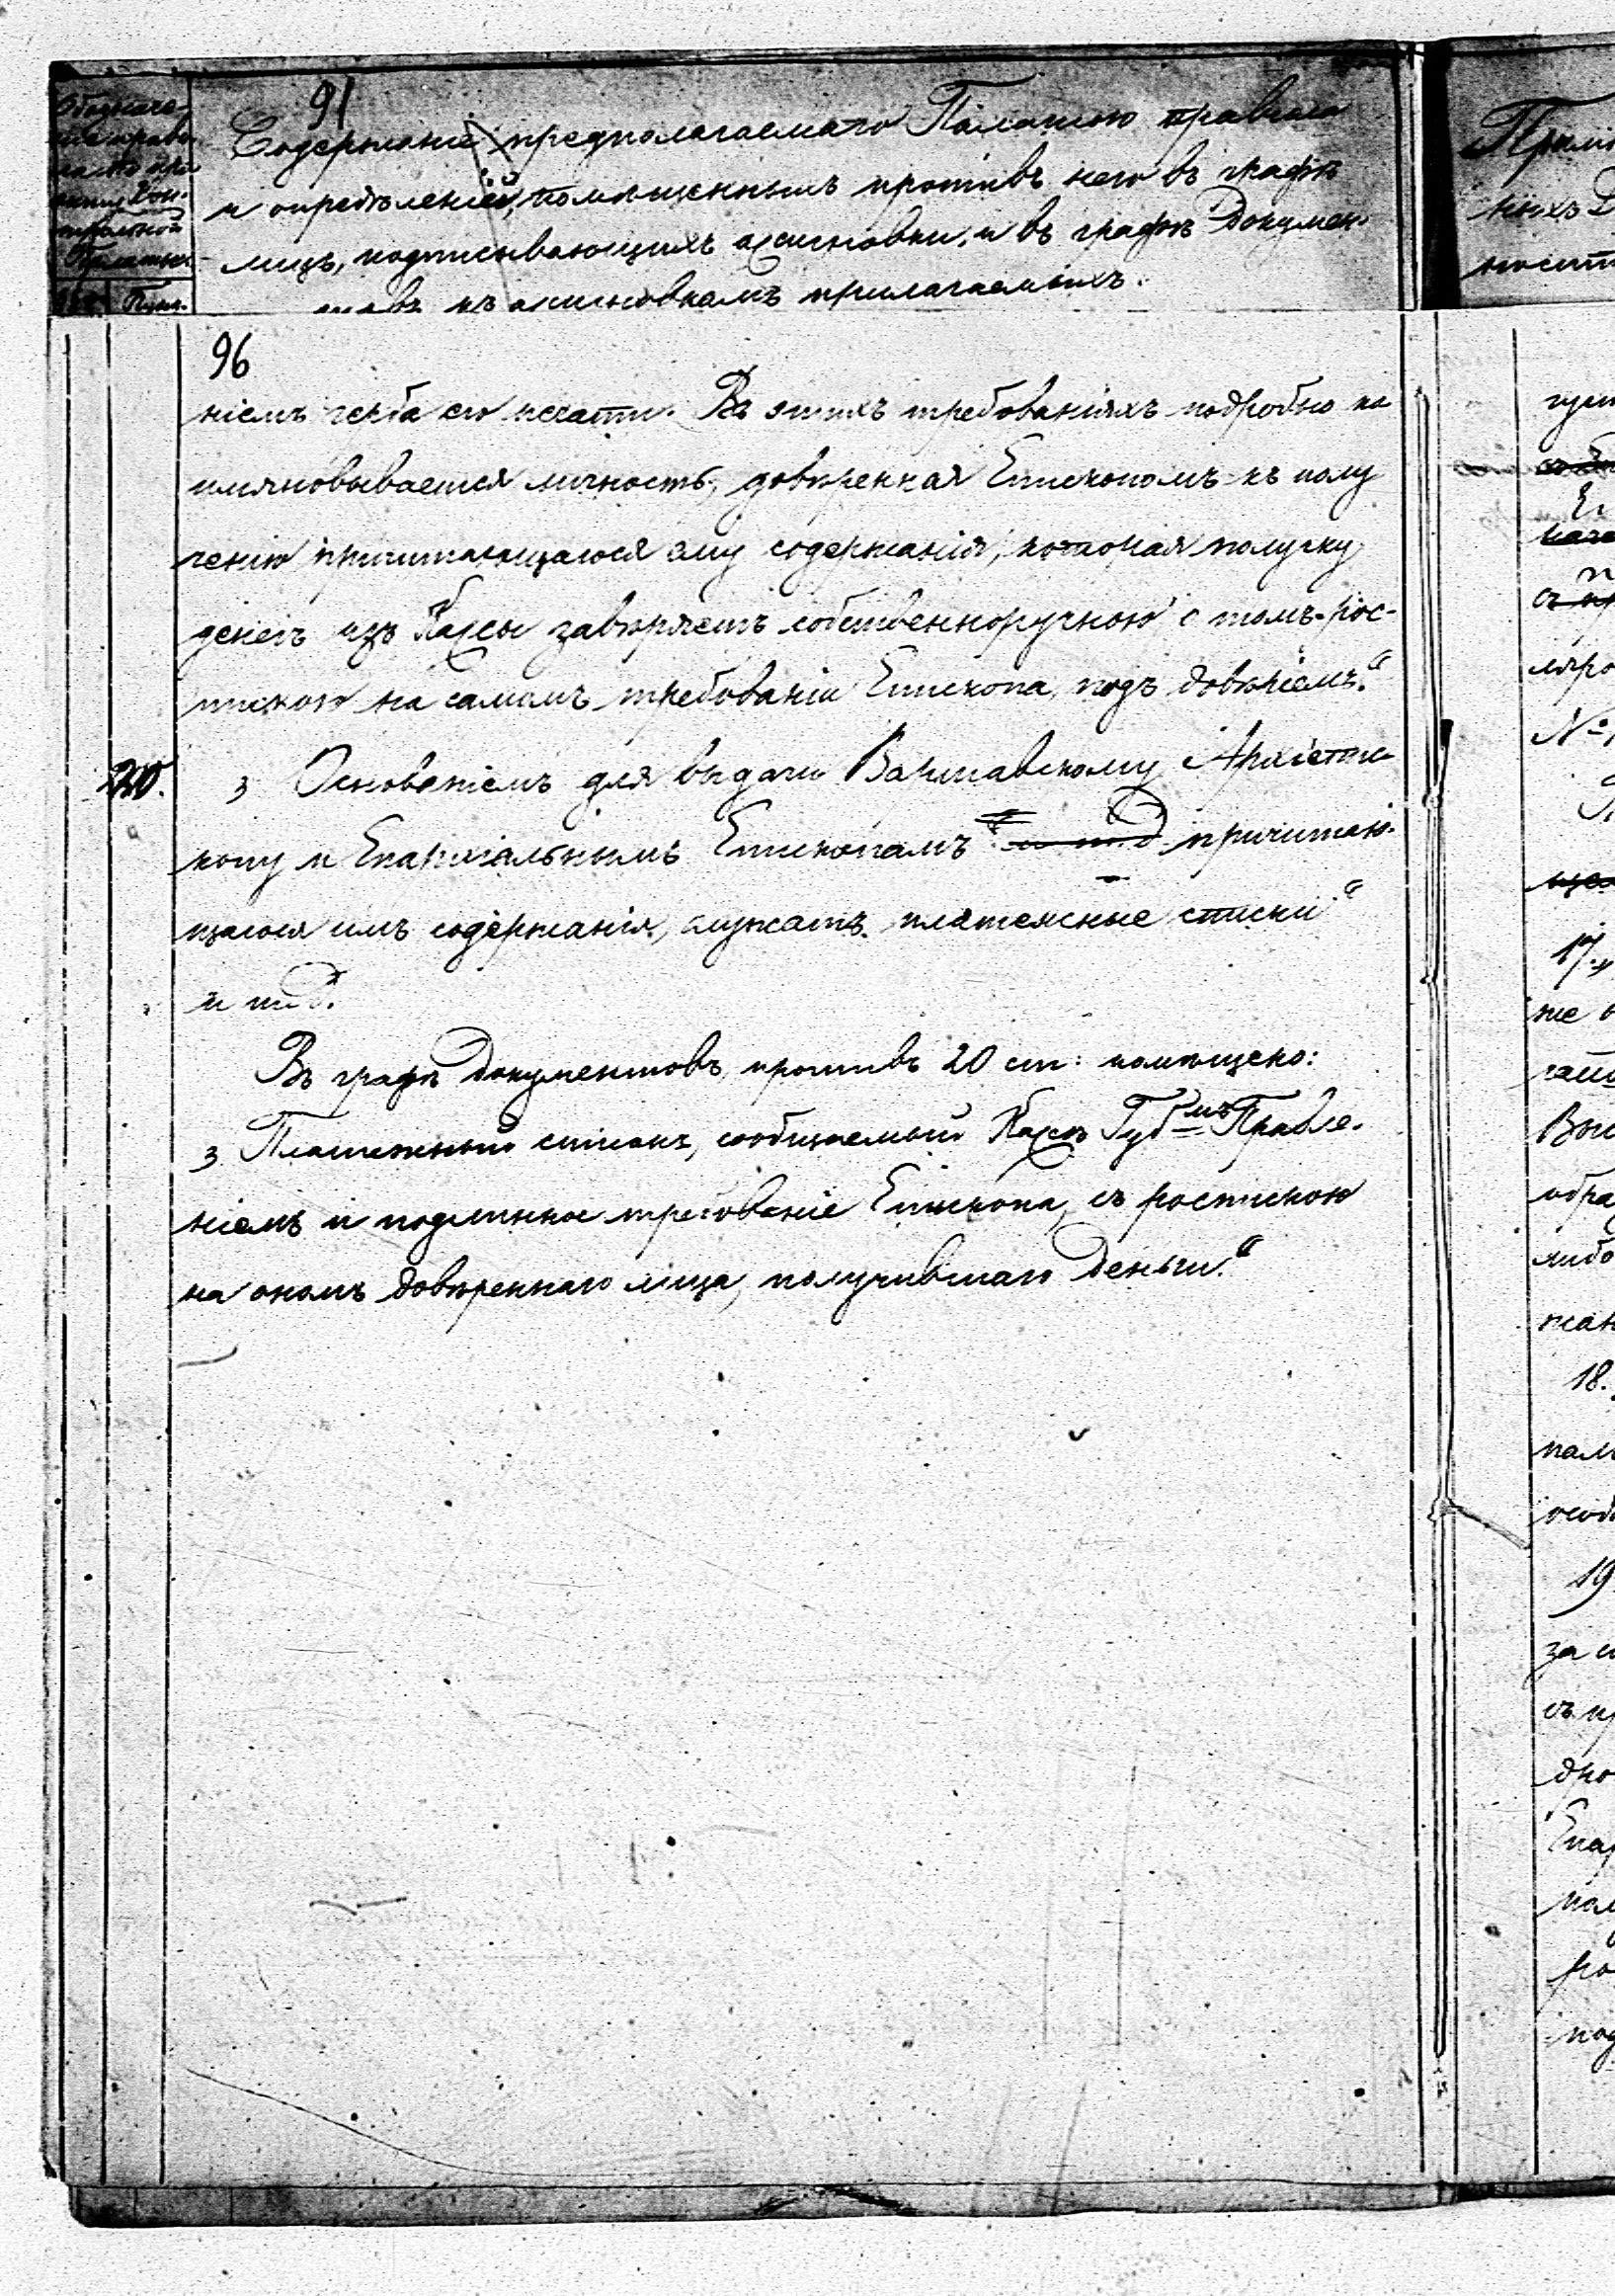 91
Обозначе-
ніе правъ
Кон-
трольной
Палаты
Пунк.
Содержаніе предполагаемаго Палатою правила
и опредѣленій, помѣщеннымъ противъ него въ графѣ
лицъ, подписывающихъ ассигновки, и въ графѣ Докумен-
товъ къ ассигновкамъ прилагаемыхъ.
96
ніемъ герба его печати. Въ этихъ требованіяхъ подробно на
имяновывается личность, довѣренная Епископомъ къ полу
ченію причитающагося ему содержанія, которая получку
денегъ изъ Кассы завѣряетъ собственноручною о томъ рос-
пискою на самомъ требованіи Епископа, подъ довѣріемъ.“
20.
з Основаніемъ для выдачи Варшавскому Архіепис
копу и Епархіальнымъ Епископамъ и т.д. причитаю-
щагося имъ содержанія, служатъ платежные списки“
и т.д.
Въ графѣ Документовъ противъ 20 ст: помѣщено:
з Платежный списокъ, сообщаемый Кассѣ Губ-мъ Правле-
ніемъ и подлинное требованіе Епископа, съ роспискою
на ономъ довѣреннаго лица, получившаго деньги.“
Прим
ныхъ
пуст
Еп
№
17.
же
Выс
обра
либо
жан
18.
пал
особ
19
за с
съ пр
дно
Епар
пал
ро
под